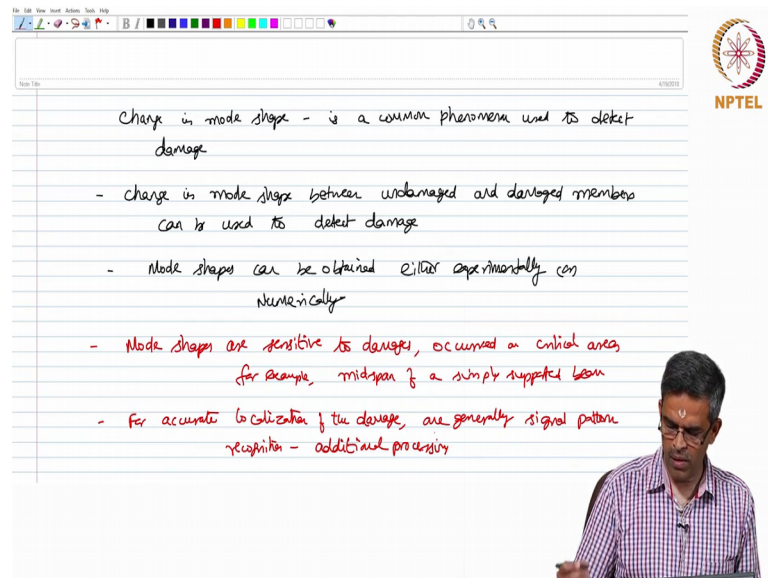 File Edit View Insert Actions Tools Help
B I
NPTEL
Note Title
4/19/2018
Change in mode shape - is a common phenomena used to detect
damage
- Change in mode shape between undamaged and damaged members
can be used to detect damage
- Mode shapes can be obtained either experimentally (or)
Numerically
- Mode shapes are sensitive to damages, occurred on critical areas
for example, midspan of a simply supported beam
- For accurate localization of the damage, are generally signal pattern
recognition - additional processing